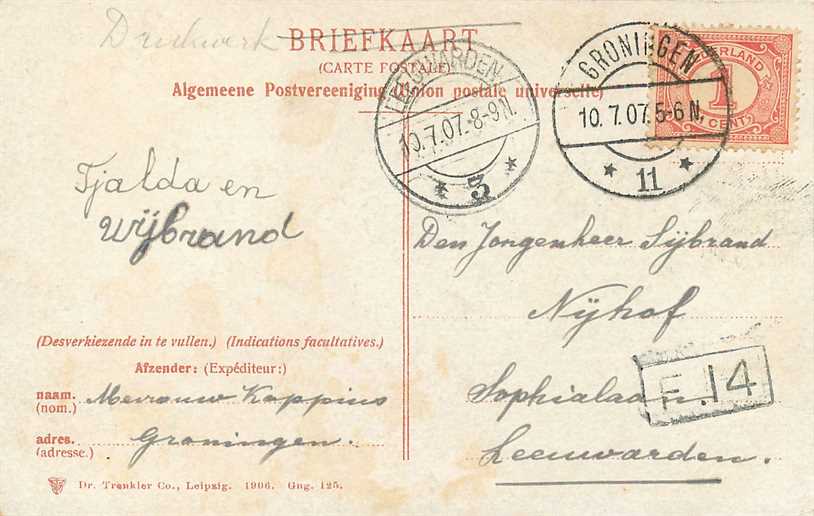 Drukwerk BRIEFKAART
(CARTE POSTALE)
Algemeene Postvereeniging (Union postale universelle)
LEEUWARDEN
10.7.07.8-9N.
* 3 *
GRONINGEN
10.7.07.5-6N.
* 11 *
NEDERLAND
1
CENT
Tjalda en
Wijbrand
Den Jongenheer Sijbrand
Nijhof
Sophialaan
Leeuwarden.
F.14
(Desverkiezende in te vullen.) (Indications facultatives.)
Afzender: (Expéditeur:)
naam. Mevrouw Koppius
(nom.)
adres. Groningen.
(adresse.)
Dr. Trenkler Co., Leipzig. 1906. Gng. 125.